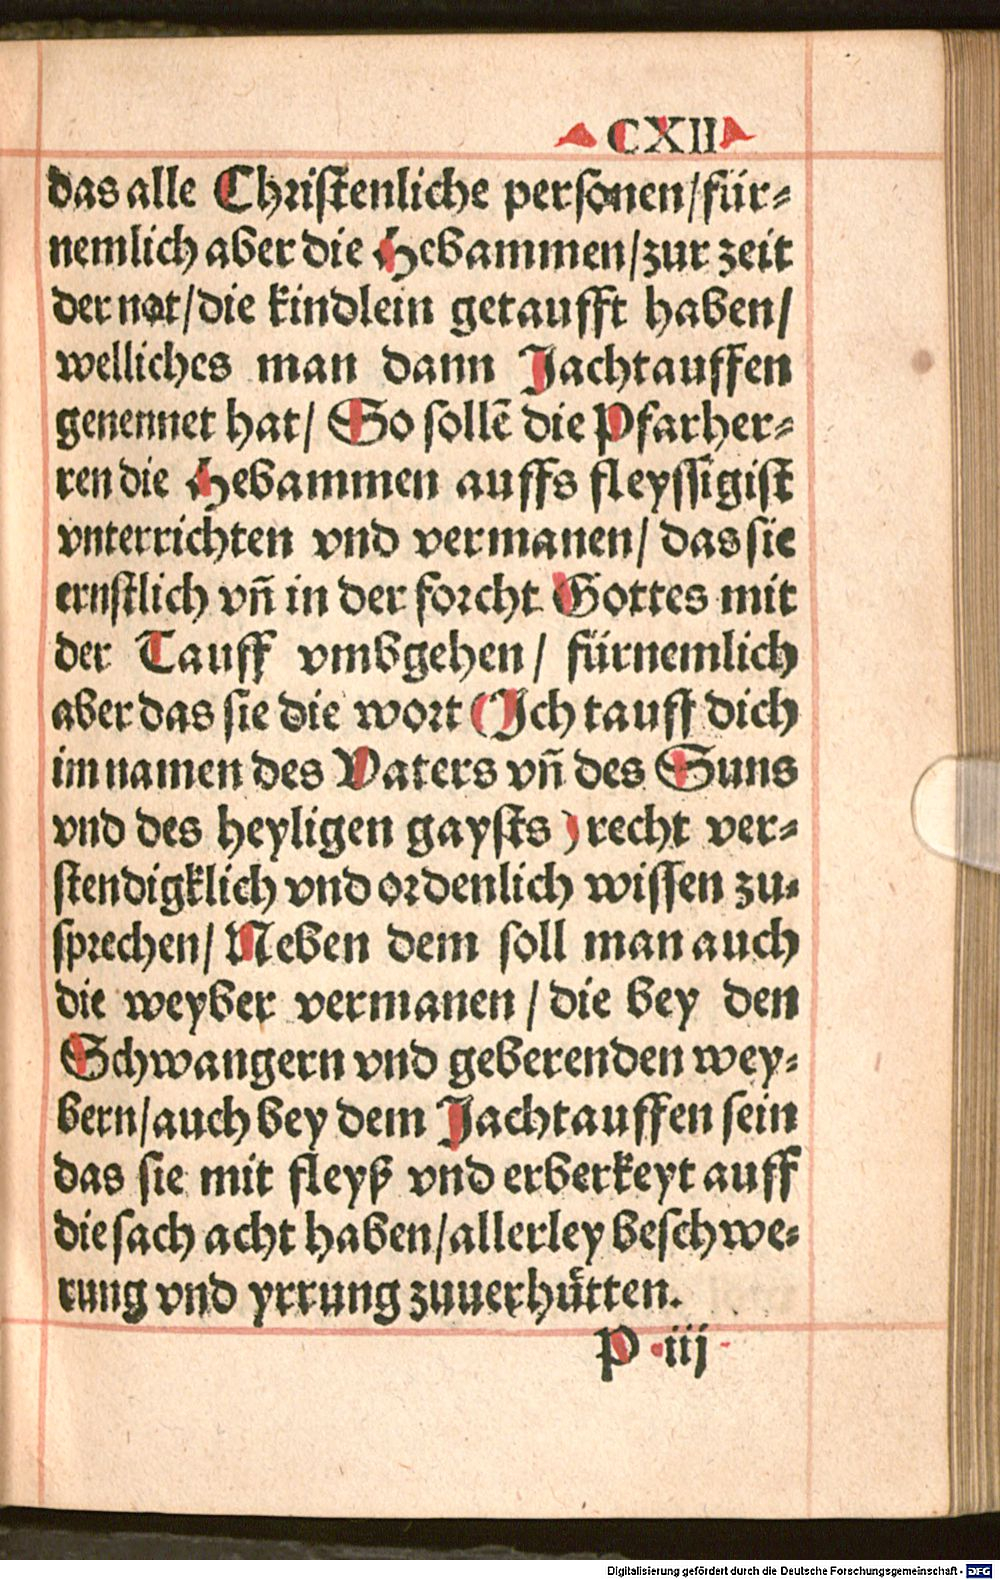 CXII
das alle Christenliche personen/für⸗
nemlich aber die Hebammen/zur zeit
der not/die kindlein getaufft haben/
welliches man dann Jachtauffen
genennet hat/ So sollē die Pfarher⸗
ren die Hebammen auffs fleyssigist
vnterrichten vnd vermanen/ das sie
ernstlich vñ in der forcht Gottes mit
der Tauff vmbgehen/ fürnemlich
aber das sie die wort (Ich tauff dich
im namen des Vaters vñ des Suns
vnd des heyligen gaysts) recht ver⸗
stendigklich vnd ordenlich wissen zu⸗
sprechen/ Neben dem soll man auch
die weyber vermanen/ die bey den
Schwangern vnd geberenden wey⸗
bern/auch bey dem Jachtauffen sein
das sie mit fleyß vnd erberkeyt auff
die sach acht haben/allerley beschwe⸗
rung vnd yrrung zuuerhuͤtten.
P iij
Digitalisierung gefördert durch die Deutsche Forschungsgemeinschaft - DFG